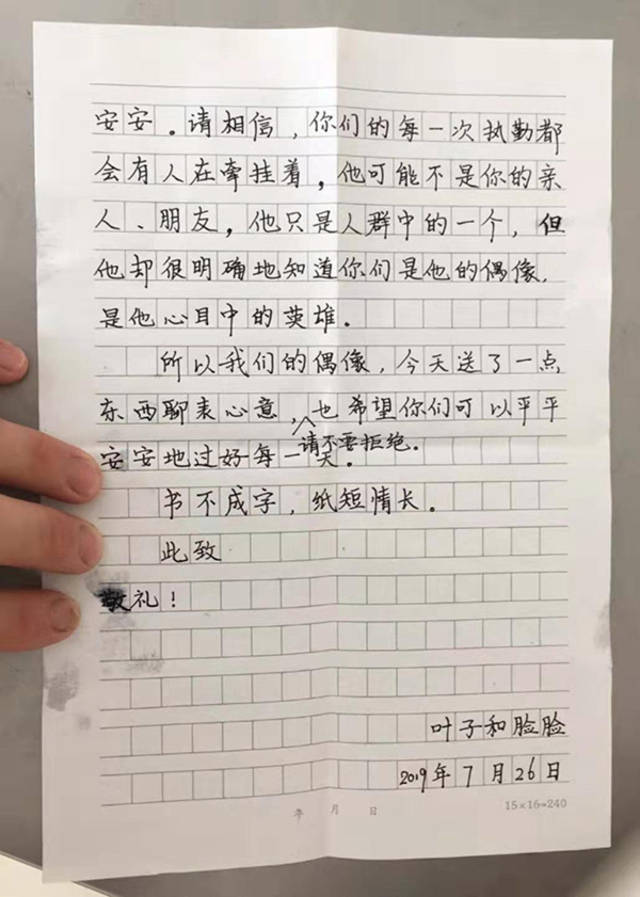 安安.请相信,你们的每一次执勤都
会有人在牵挂着,他可能不是你的亲
人、朋友,他只是人群中的一个,但
他却很明确地知道你们是他的偶像.
是他心目中的英雄.
所以我们的偶像,今天送了一点
东西聊表心意,也希望你们可以平平
请不要拒绝.
安安地过好每一天.
书不成字,纸短情长.
此致
敬礼!
叶子和脸脸
2019年7月26日
年 月 日
15×16=240